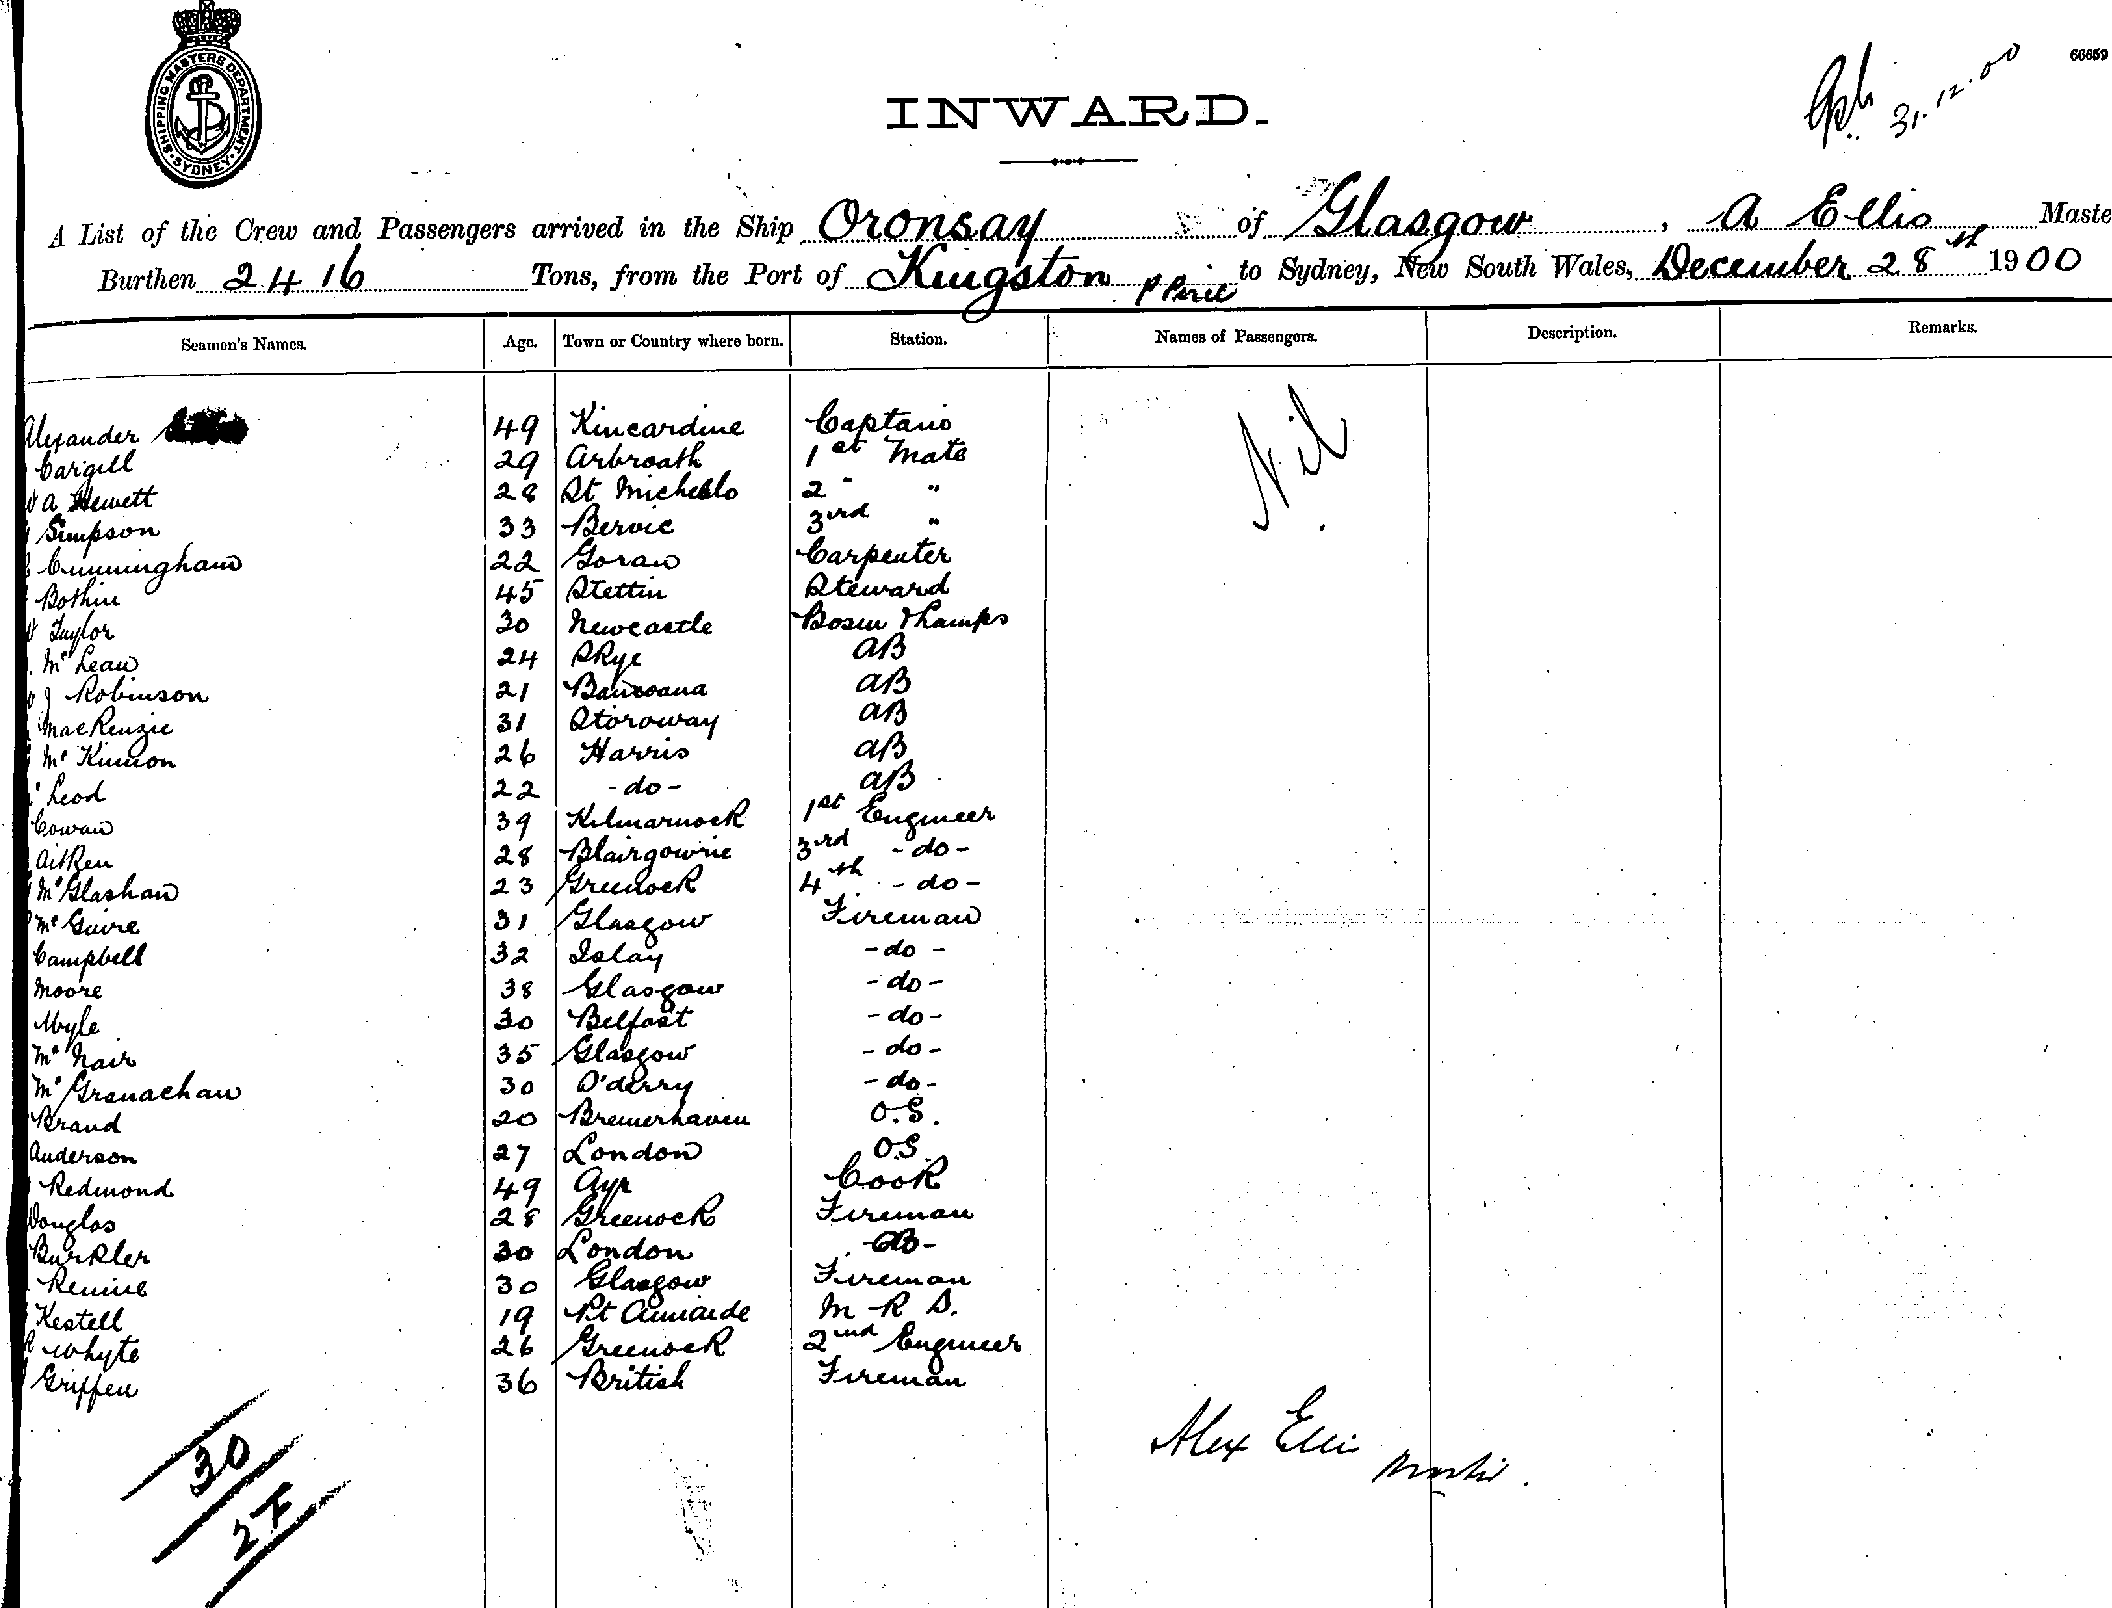 SHIPPING MASTERS DEPARTMENT SYDNEY
66659
31.12.00
INWARD.
A List of the Crew and Passengers arrived in the Ship Oronsay of Glasgow, A Ellis Maste
Burthen 2416 Tons, from the Port of Kingston to Sydney, New South Wales, December 28th 1900
Seamen's Names. Age. Town or Country where born. Station. Names of Passengers. Description. Remarks.
Alexander 49 Kincardine Captain Nil
Cargill 29 Arbroath 1st Mate
A Hewett 28 St Michello 2 " "
Simpson 33 Bervie 3rd "
Cunningham 22 Goran Carpenter
Bothin 45 Stettin Steward
Taylor 30 Newcastle Bosun & Lamps
Mc Lean 24 Skye AB
J Robinson 21 AB
MacKenzie 31 Storoway AB
Mc Kinnon 26 Harris AB
Leod 22 -do- AB
Cowan 39 Kilmarnock 1st Engineer
Aitken 28 Blairgowrie 3rd -do-
McGlashan 23 Greenock 4th -do-
Mc Guire 31 Glasgow Fireman
Campbell 32 Islay -do-
Moore 38 Glasgow -do-
30 Belfast -do-
Mc Nair 35 Glasgow -do-
Mc Grenachan 30 O'derry -do-
Brand 20 Bremerhaven O.S.
Anderson 27 London O.S.
Redmond 49 Ayr Cook
Douglas 28 Greenock Fireman
Burkler 30 London
Rennie 30 Glasgow Fireman
Kestell 19 Pt M R S.
Whyte 26 Greenock 2nd Engineer
Griffen 36 British Fireman
Alex Ellis Master.
30
2F